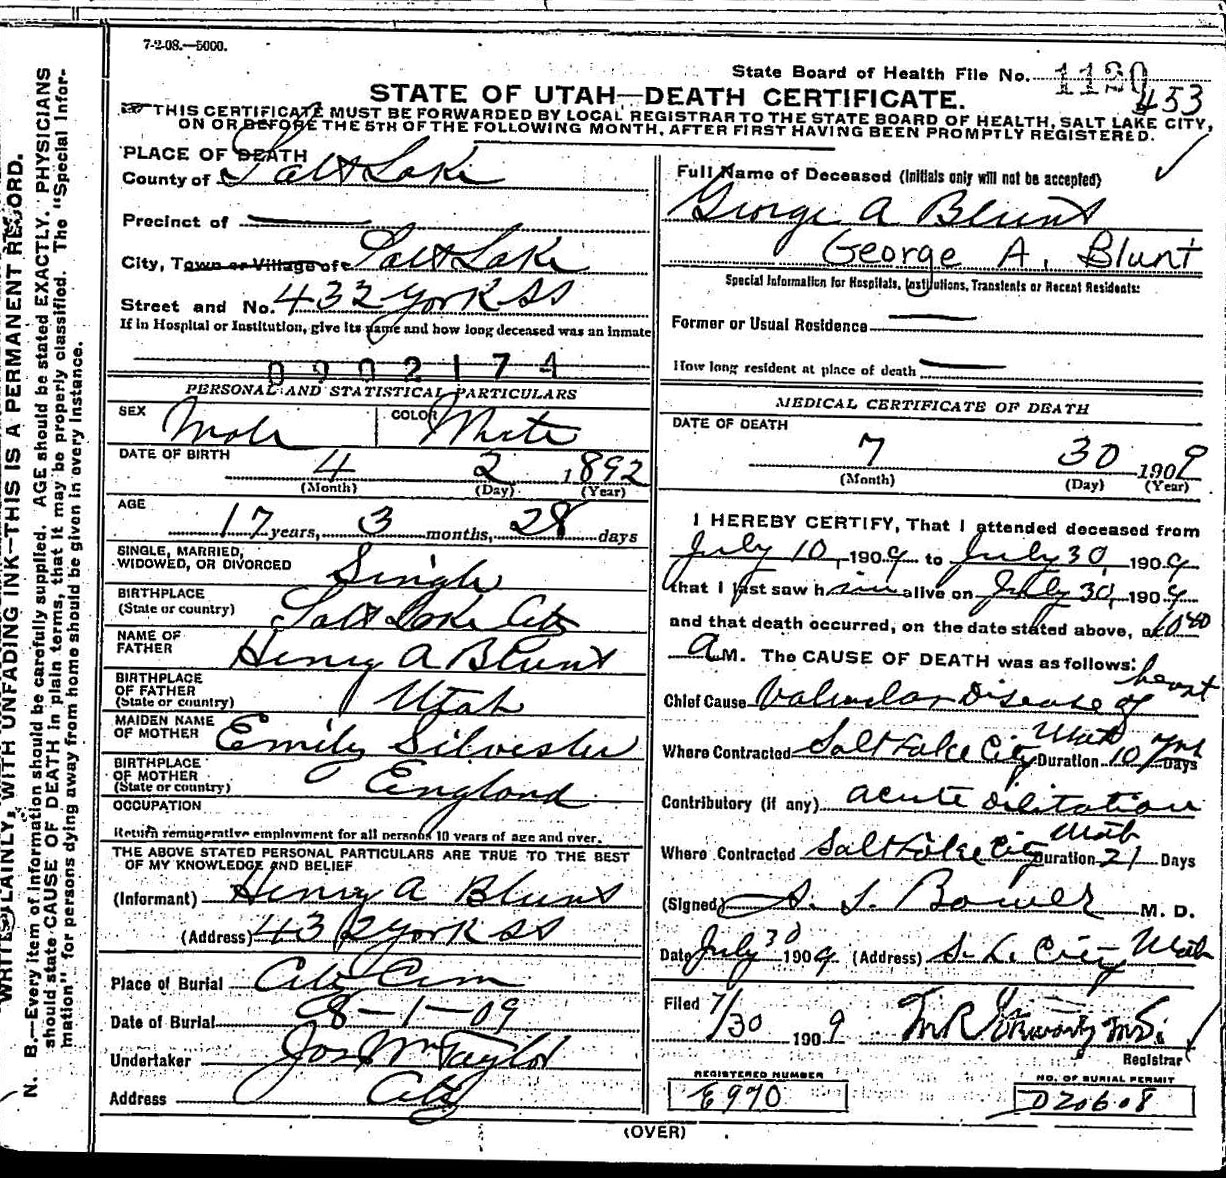 7-2-08.—5000.
State Board of Health File No. 1120
453
STATE OF UTAH—DEATH CERTIFICATE.
THIS CERTIFICATE MUST BE FORWARDED BY LOCAL REGISTRAR TO THE STATE BOARD OF HEALTH, SALT LAKE CITY,
ON OR BEFORE THE 5TH OF THE FOLLOWING MONTH, AFTER FIRST HAVING BEEN PROMPTLY REGISTERED.
WRITE PLAINLY, WITH UNFADING INK—THIS IS A PERMANENT RECORD.
N. B.—Every item of information should be carefully supplied. AGE should be stated EXACTLY. PHYSICIANS
should state CAUSE OF DEATH in plain terms, that it may be properly classified. The "Special Infor-
mation" for persons dying away from home should be given in every instance.
PLACE OF DEATH
County of Salt Lake
Precinct of
City, Town or Village of Salt Lake
Street and No. 432 York St
If in Hospital or Institution, give its name and how long deceased was an inmate
0902174
PERSONAL AND STATISTICAL PARTICULARS
SEX Male COLOR White
DATE OF BIRTH
4 2 1892
(Month) (Day) (Year)
AGE
17 years, 3 months, 28 days
SINGLE, MARRIED,
WIDOWED, OR DIVORCED Single
BIRTHPLACE
(State or country) Salt Lake City
NAME OF
FATHER Henry A Blunt
BIRTHPLACE
OF FATHER
(State or country) Utah
MAIDEN NAME
OF MOTHER Emily Silvester
BIRTHPLACE
OF MOTHER
(State or country) England
OCCUPATION
Return remunerative employment for all persons 10 years of age and over.
THE ABOVE STATED PERSONAL PARTICULARS ARE TRUE TO THE BEST
OF MY KNOWLEDGE AND BELIEF
(Informant) Henry A Blunt
(Address) 432 York St
Place of Burial City Cem
Date of Burial 8-1-09
Undertaker Jos Wm Taylor
Address City
Full Name of Deceased (Initials only will not be accepted)
George A Blunt
George A. Blunt
Special Information for Hospitals, Institutions, Transients or Recent Residents:
Former or Usual Residence
How long resident at place of death
MEDICAL CERTIFICATE OF DEATH
DATE OF DEATH
7 30 1909
(Month) (Day) (Year)
I HEREBY CERTIFY, That I attended deceased from
July 10, 1909 to July 30, 1909
that I last saw him alive on July 30, 1909
and that death occurred, on the date stated above, at 10:40
A M. The CAUSE OF DEATH was as follows:
Chief Cause Valvular Disease of heart
Where Contracted Salt Lake City Utah Duration 10 yrs Days
Contributory (if any) acute dilitation
Where Contracted Salt Lake City Utah Duration 21 Days
(Signed) Bower M. D.
Date July 30 1909 (Address) S. L. City Utah
Filed 7/30 1909
Registrar
REGISTERED NUMBER
E970
NO. OF BURIAL PERMIT
D20608
(OVER)